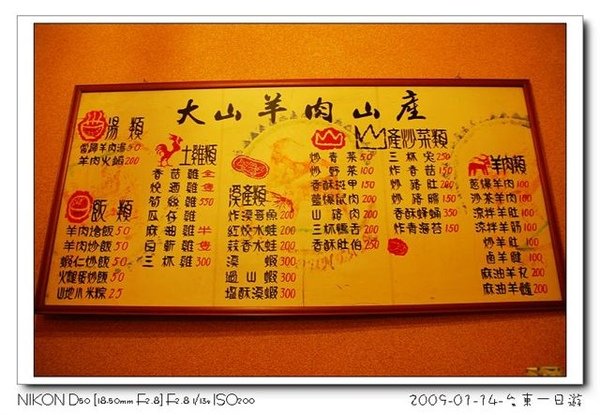 大山羊肉山產
湯類
當歸羊肉湯50
羊肉火鍋200
飯類
羊肉燴飯50
羊肉炒飯50
蝦仁炒飯50
火腿蛋炒飯50
山地小米粽25
土雞類
香菇雞全
燒酒雞隻
筍絲雞550
瓜仔雞
麻油雞半
白斬雞隻
三杯雞300
溪產類
炸溪哥魚200
紅燒水蛙200
蒜香水蛙200
溪蝦300
過山蝦300
塩酥溪蝦300
產炒菜類
炒青菜50
炒野菜100
香酥斑甲150
蔥爆鼠肉200
山豬肉200
三杯鴨舌200
香酥肚伯250
三杯兔250
炒香菇150
炒豬肚200
炒豬腸150
香酥蜂蛹350
炸青海苔150
羊肉類
蔥爆羊肉100
沙茶羊肉100
涼拌羊肚100
涼拌羊筋100
炒羊肚100
滷羊雜100
麻油羊丸200
麻油羊髓200
NIKON D50 [18-50mm F2.8] F2.8 1/13s ISO200
2009-01-14-台東一日遊